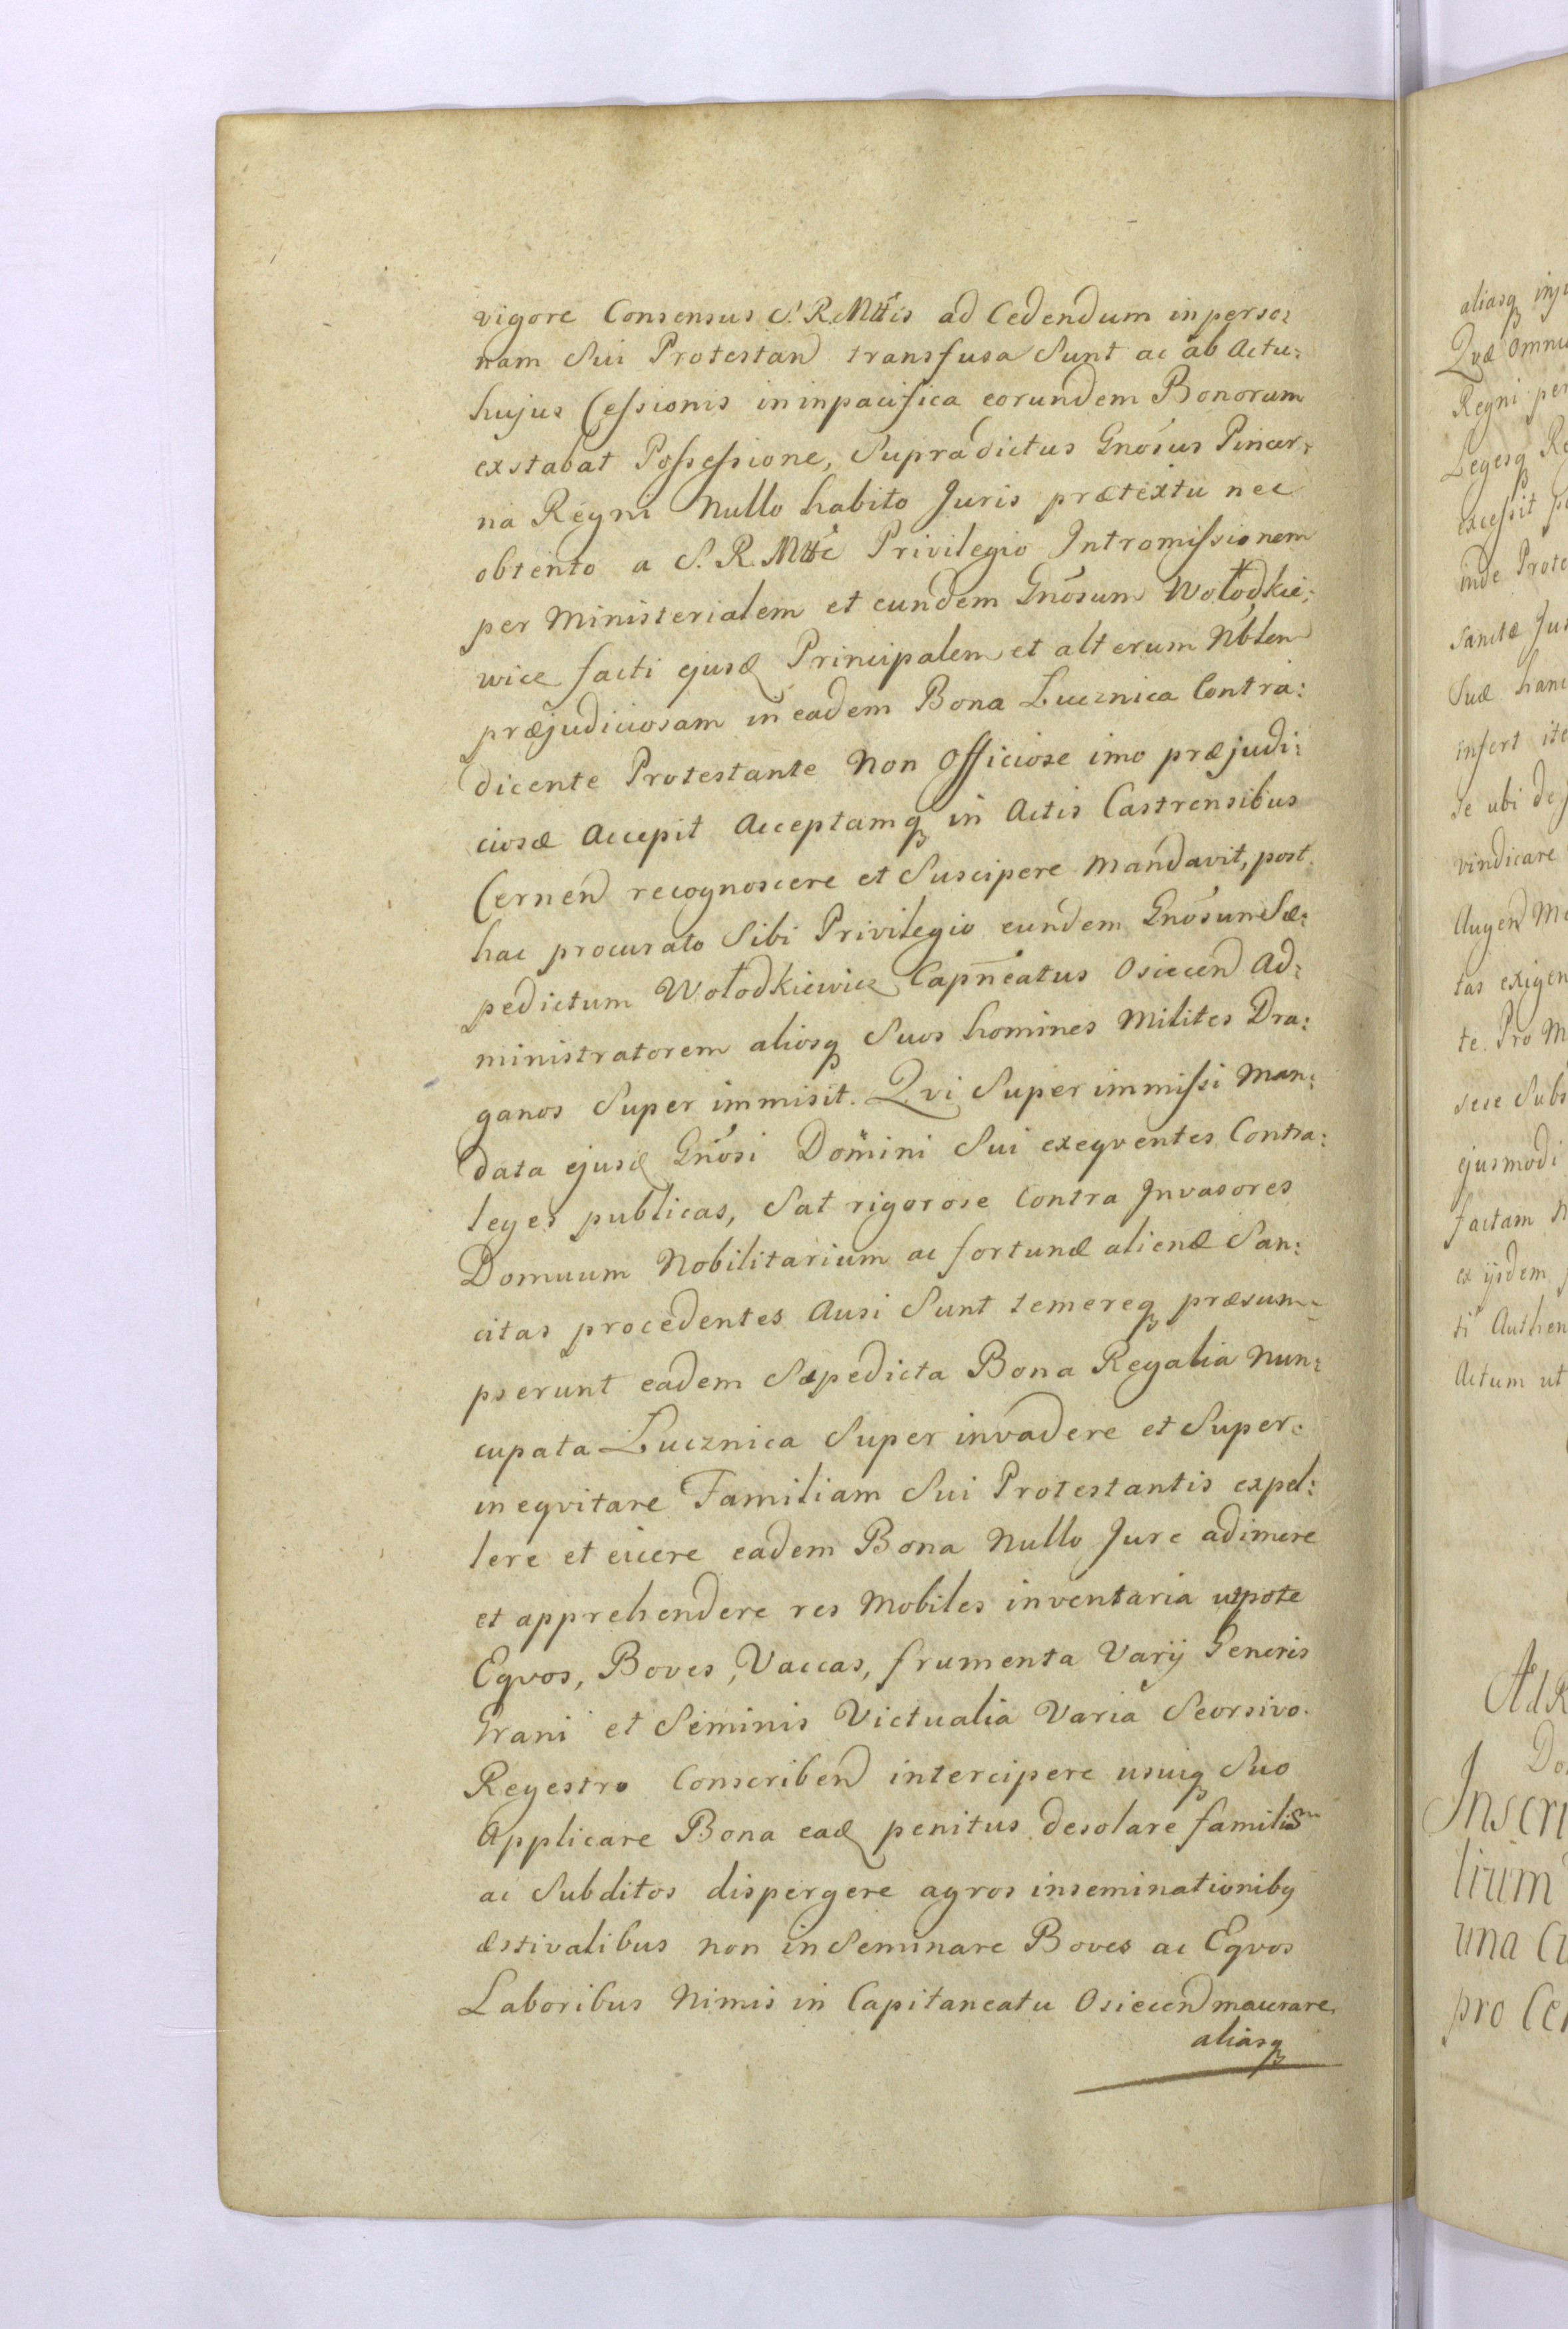 vigore Consensus S. R. Mttis ad Cedendum in perso:
nam Sui Protestand transfusa Sunt ac ab Actu:
hujus Cessionis in inpacifica eorundem Bonorum
exstabat Possessione, Supradictus Gnosus Pincer:
na Regni Nullo habito Juris prætextu nec
obtento a S. R. Mtte Privilegio Intromissionem
per Ministerialem et eundem Gnosum Wołodkie:
wicz facti ejusd Principalem et alterum Nblem
præjudiciosam in eadem Bona Lucznica Contra:
dicente Protestante Non Officiose imo præjudi:
ciosæ Accepit Acceptamq in Actis Castrensibus
Cernen recognoscere et Suscipere Mandavit, post
hac procurato Sibi Privilegio eundem Gnosum Sæ:
pedictum Wołodkiewicz Capneatus Osiecen Ad:
ministratorem aliosq Suos homines Milites Dra:
ganos Super immisit. Qvi Super immissi Man:
data ejusd Gnosi Domini Sui exeqventes Contra:
leges publicas, Sat rigorose Contra Invasores
Domuum Nobilitarium ac fortunæ alienæ San:
citas procedentes Ausi Sunt temereq præsum:
pserunt eadem Sæpedicta Bona Regalia Nun:
cupata Lucznica Super invadere et Super:
in eqvitare Familiam Sui Protestantis expel:
lere et eicere eadem Bona Nullo Jure adimere
et apprehendere res Mobiles inventaria utpote
Eqvos, Boves, Vaccas, frumenta Varij Generis
Grani et Seminis Victualia Varia Seorsivo
Regestro Conscriben intercipere usuiq Suo
Applicare Bona ead penitus desolare familiam
ac Subditos dispergere agros inseminationibq
æstivalibus non in Seminare Boves ac Eqvos
Laboribus Nimis in Capitaneatu Osiecen macerare
aliasq
aliasq inju
Qvæ omni
Regni per
Legesq Re
excessit p
inde Prote
Sanctæ Jus
Suæ hanc
infert ite
se ubi de j
vindicare
Augen Me
tas exigen
te. Pro M
sese Subs
ejusmodi
factam
ex ijsdem
ti Authen
Actum ut
Ad R
Do
Inscri
lium
una Cu
pro Cer